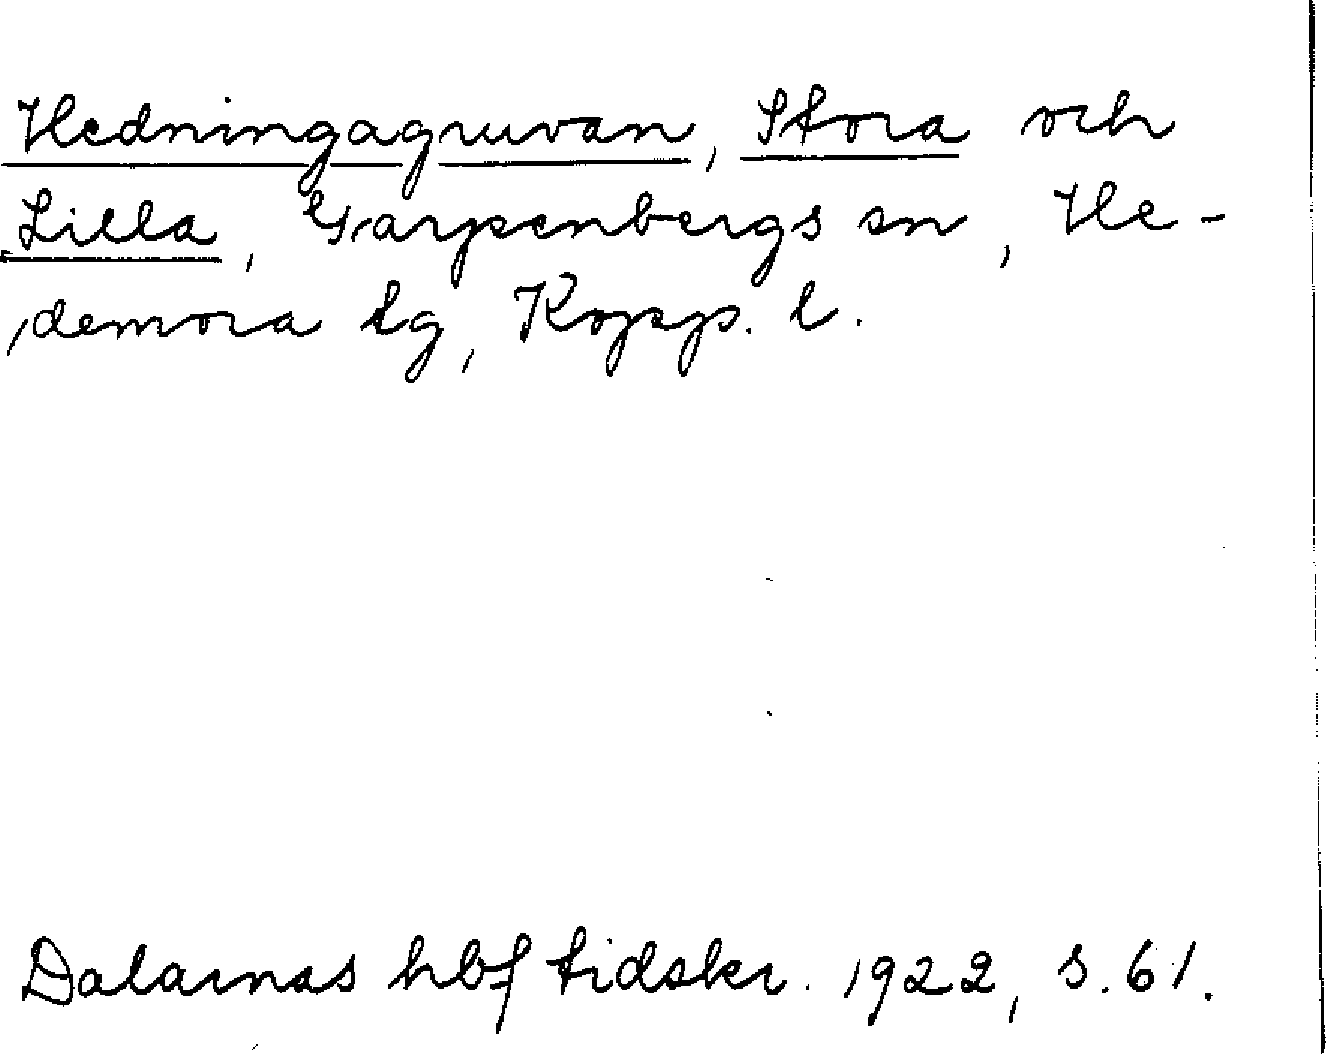 Hedningagruvan, Stora och
Lilla, Garpenbergs sn, He-
demora tg, Kopp. l.
Dalarnas hbf tidskr. 1922, s. 61.